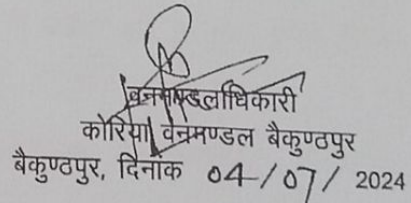 वनमण्डलाधिकारी
कोरिया वनमण्डल बैकुण्ठपुर
बैकुण्ठपुर, दिनांक 04/07/ 2024